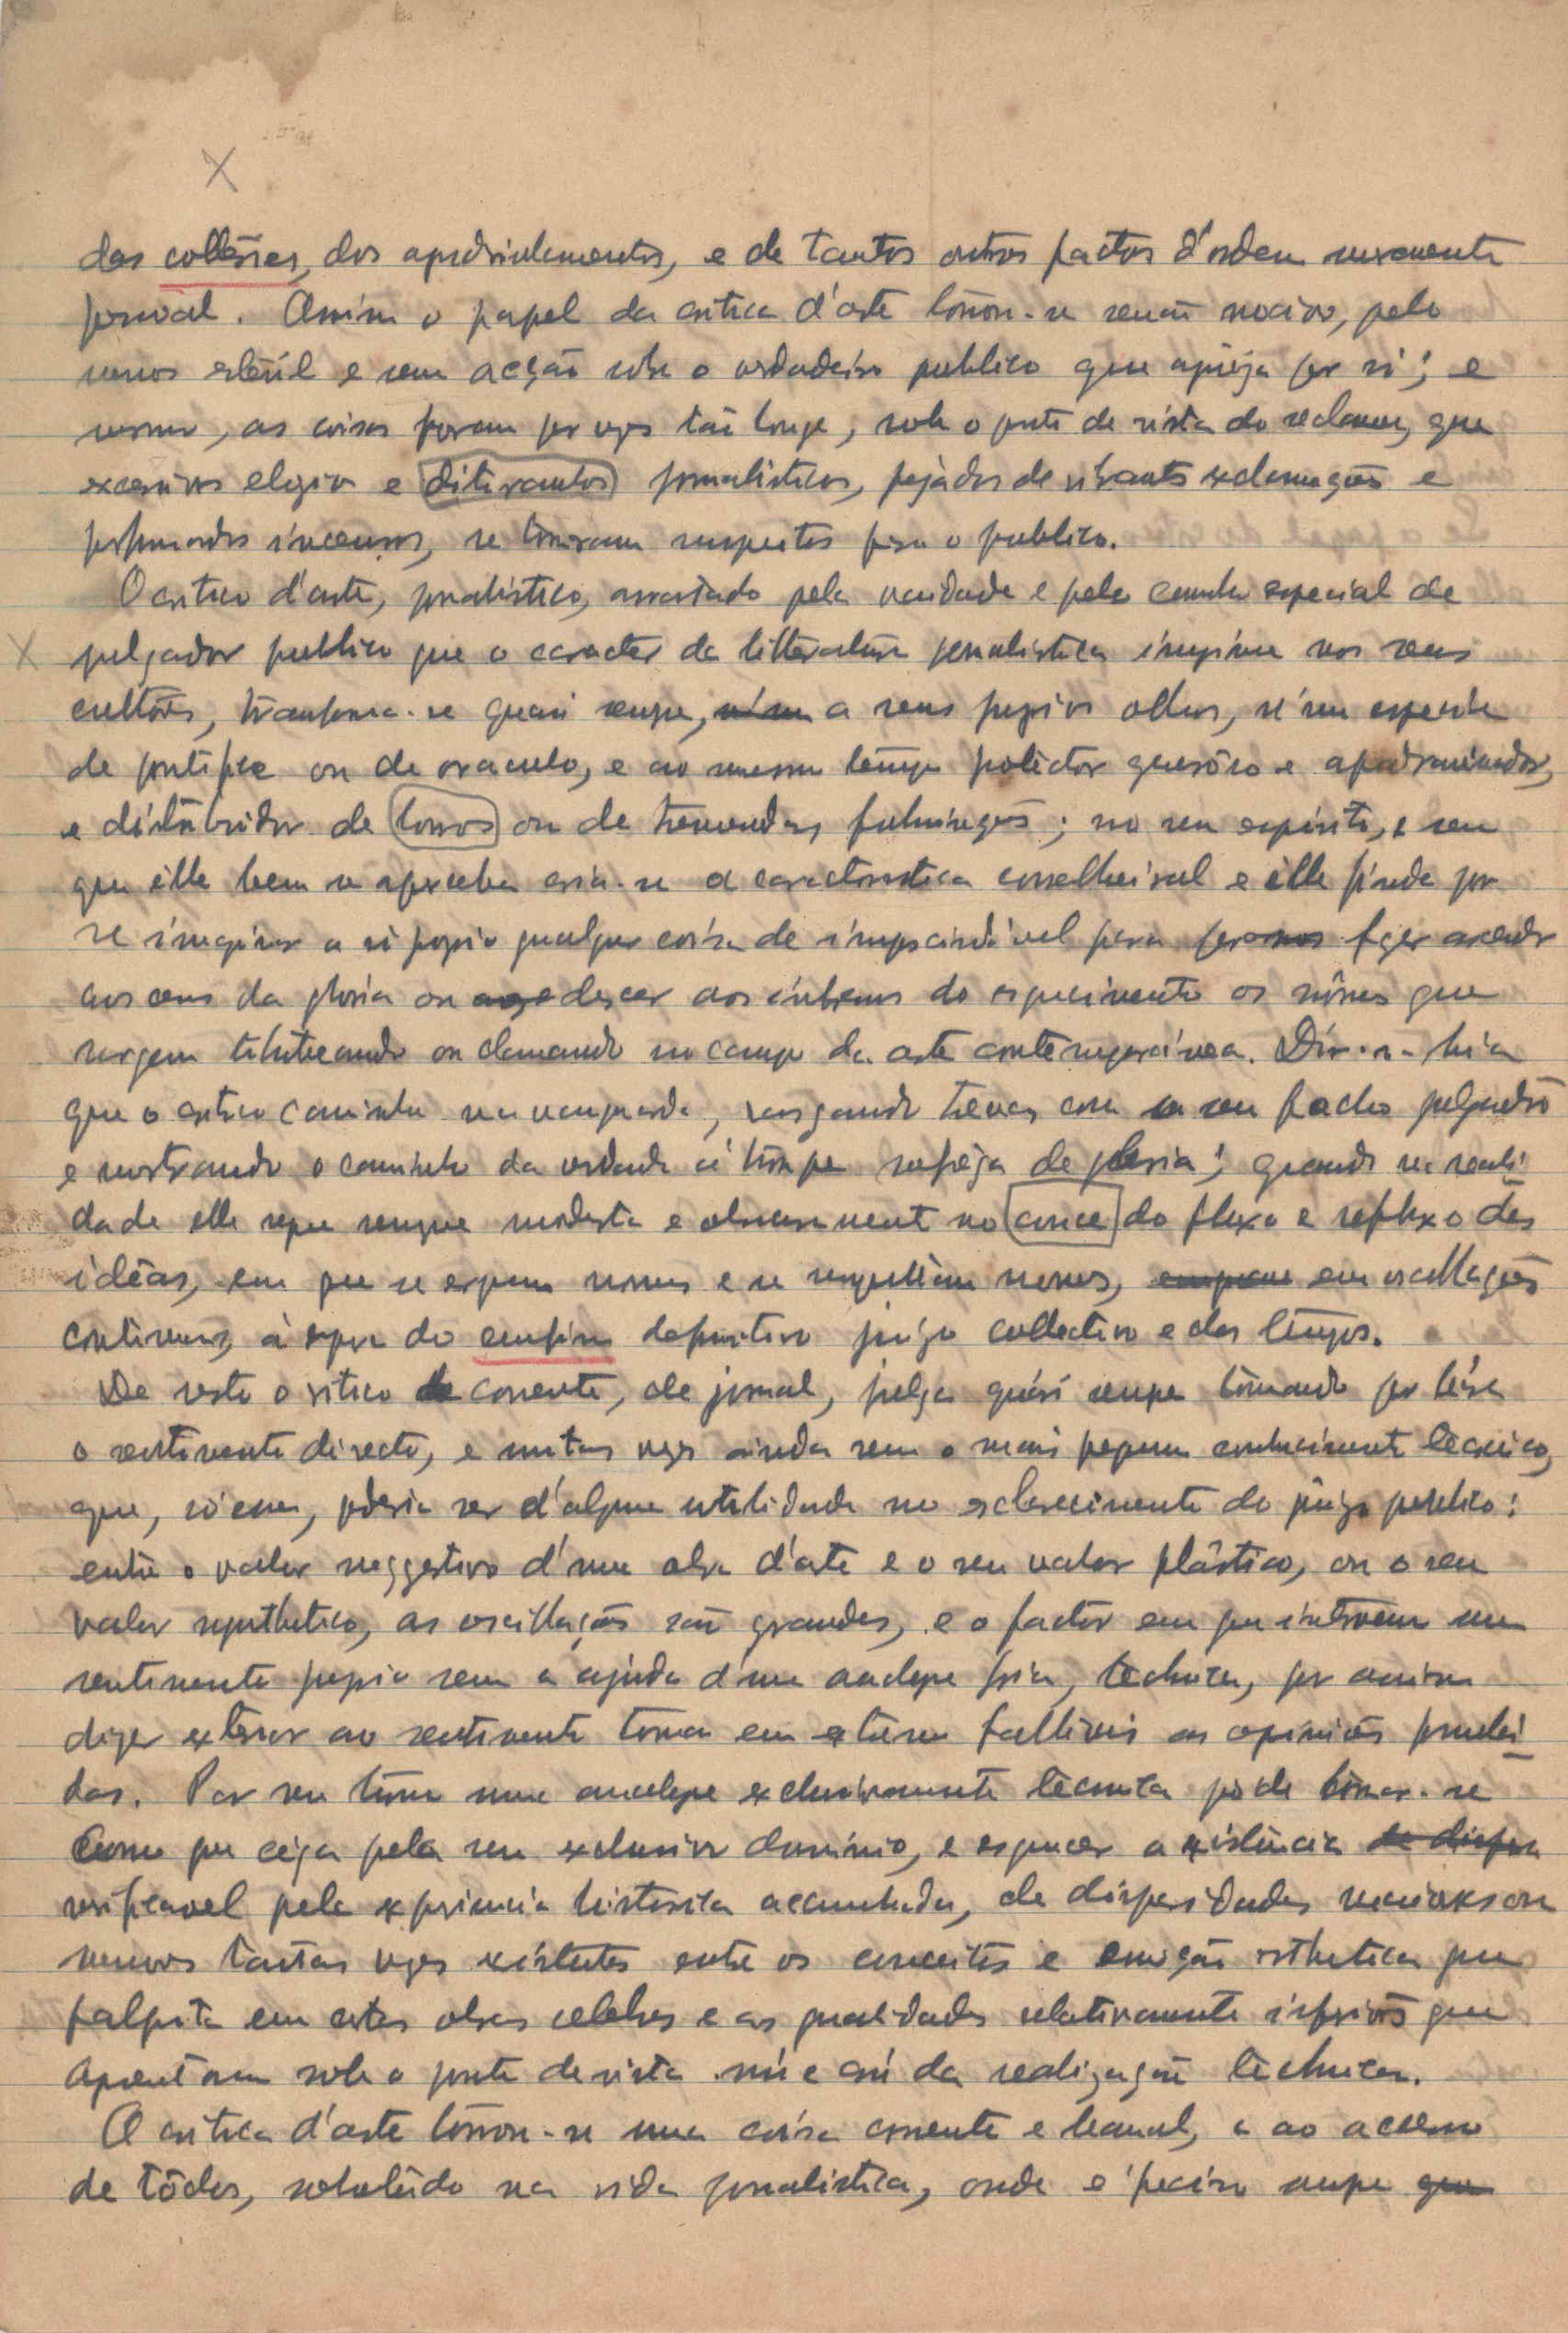 das collésses, dos apadrinhamentos, e de tantos outros factos d'ordem meramente
pessoal. Assim o papel da critica d'arte tornou-se senão nocivo, pelo
menos estéril e sem acção sobre o verdadeiro publico que apreja por si; e
mesmo, as coisas foram por vezes tão longe, sob o ponto de vista do reclamo, que
excessivos elogios e ditirambos jornalisticos, pejados de vibrantes exclamações e
perfumados incensos, se tornaram suspeitos para o publico.
O critico d'arte, jornalistico, arrastado pela vaidade e pelo cunho especial de
julgador publico que o caracter da litteratura jornalistica imprime nos seus
cultores, transforma-se quasi sempre, a seus proprios olhos, n'uma especie
de pontifice ou de oraculo, e ao mesmo tempo protector generoso e apadrinhador,
e distribuidor de louros ou de tremendas fulminações; no seu espirito, e sem
que elle bem se aperceba cria-se a caracteristica conselheiral e elle finda por
se imaginar a si proprio qualquer coisa de imprescindivel para fazer ascender
aos ceus da gloria ou descer aos infernos do esquecimento os nomes que
surgem titubeando ou clamando no campo da arte contemporanea. Dir-se-hia
que o critico caminha na vanguarda, rasgando trevas com o seu facho julgador
e mostrando o caminho da verdade á turba de gloria; quando na reali-
dade elle segue sempre modesta e obscuramente no couce do fluxo e refluxo das
idéas, em que se erguem nomes e se sepultam nomes, em oscillações
continuas, á espera do emfim definitivo juizo collectivo e dos tempos.
De resto o critico corrente, de jornal, julga quasi sempre tomando por base
o sentimento directo, e muitas vezes ainda sem o mais pequeno conhecimento tecnico,
que, só esse, poderia ser d'alguma utilidade no esclarecimento do juizo publico:
entre o valor suggestivo d'uma obra d'arte e o seu valor plástico, ou o seu
valor synthetico, as oscillações são grandes, e o factor em que intervem um
sentimento proprio sem a ajuda d'uma analyse fria, technica, por assim
dizer exterior ao sentimento torna em extremo falliveis as opiniões produzi-
das. Por seu turno uma analyse exclusivamente tecnica póde tornar-se
como que cega pelo seu exclusivo dominio, e esquecer a existencia
verificavel pela experiencia historica accumulada, de disparidades maiores ou
menores tantas vezes existentes entre os conceitos e emoção esthetica que
palpita em certas obras celebres e as qualidades relativamente inferiores que
apresentam sob o ponto de vista nú e crú da realização technica.
A critica d'arte tornou-se uma coisa corrente e banal, e ao acesso
de tôdos, sobretudo na vida jornalistica, onde é preciso sempre